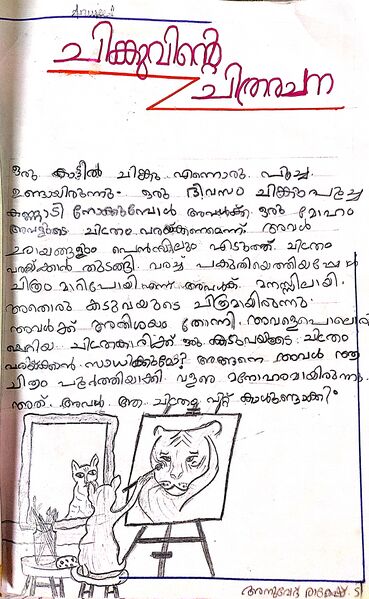 ചിക്കുവിന്റെ
ചിത്രരചന
ഒരു കാട്ടിൽ ചിക്കു എന്നൊരു പൂച്ച
ഉണ്ടായിരുന്നു. ഒരു ദിവസം ചിക്കുപൂച്ച
കണ്ണാടി നോക്കുമ്പോൾ അവൾക്ക് ഒരു മോഹം
അവളുടെ ചിത്രം വരയ്ക്കണമെന്ന്. അവൾ
ചായങ്ങളും പെൻസിലും എടുത്ത് ചിത്രം
വരയ്ക്കാൻ തുടങ്ങി. വരച്ച് പകുതിയെത്തിയപ്പോൾ
ചിത്രം മാറിപോയി എന്ന് അവൾക്ക് മനസ്സിലായി.
അതൊരു കടുവയുടെ ചിത്രമായിരുന്നു.
അവൾക്ക് അതിശയം തോന്നി. അവളെപൊലൊരു
ചെറിയ ചിത്രകാരിക്ക് ഒരു കടുവയുടെ ചിത്രം
വരയ്ക്കാൻ സാധിക്കുമോ? അങ്ങനെ അവൾ ആ
ചിത്രം പൂർത്തിയാക്കി വളരെ മനോഹരമായിരുന്നു
അത്. അവൾ ആ ചിത്രം വിറ്റ് കാശുണ്ടാക്കി.